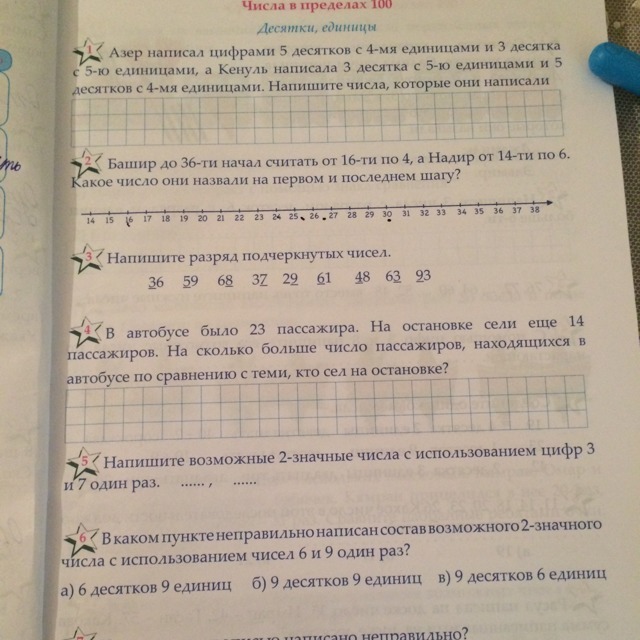 Числа в пределах 100
Десятки, единицы
1 Азер написал цифрами 5 десятков с 4-мя единицами и 3 десятка
с 5-ю единицами, а Кенуль написала 3 десятка с 5-ю единицами и 5
десятков с 4-мя единицами. Напишите числа, которые они написали
2 Башир до 36-ти начал считать от 16-ти по 4, а Надир от 14-ти по 6.
Какое число они назвали на первом и последнем шагу?
14 15 16 17 18 19 20 21 22 23 24 25 26 27 28 29 30 31 32 33 34 35 36 37 38
3 Напишите разряд подчеркнутых чисел.
36 59 68 37 29 61 48 63 93
4 В автобусе было 23 пассажира. На остановке сели еще 14
пассажиров. На сколько больше число пассажиров, находящихся в
автобусе по сравнению с теми, кто сел на остановке?
5 Напишите возможные 2-значные числа с использованием цифр 3
и 7 один раз. ...... , ......
6 В каком пункте неправильно написан состав возможного 2-значного
числа с использованием чисел 6 и 9 один раз?
а) 6 десятков 9 единиц б) 9 десятков 9 единиц в) 9 десятков 6 единиц
написано неправильно?